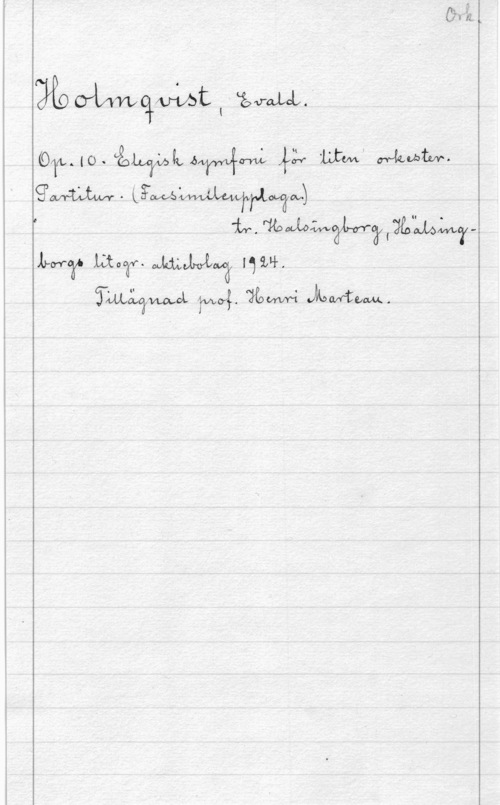 Ork.
Holmqvist, Evald.
Op. 10. Elegisk symfoni för liten orkester.
Partitur. (Facsimileupplaga.)
tr. Halsingborg, Hälsing-
borgs litogr. aktiebolag 1924.
Tillägnad prof. Henri Marteau.